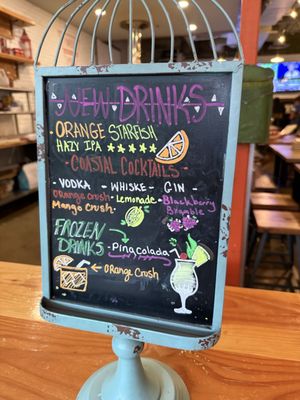 NEW DRINKS
ORANGE STARFISH
HAZY IPA
-COASTAL COCKTAILS-
-VODKA -WHISKE- GIN-
Orange crush Lemonade Blackberry
Mango Crush Bramble
FROZEN
DRINKS Pinacolada
Orange Crush